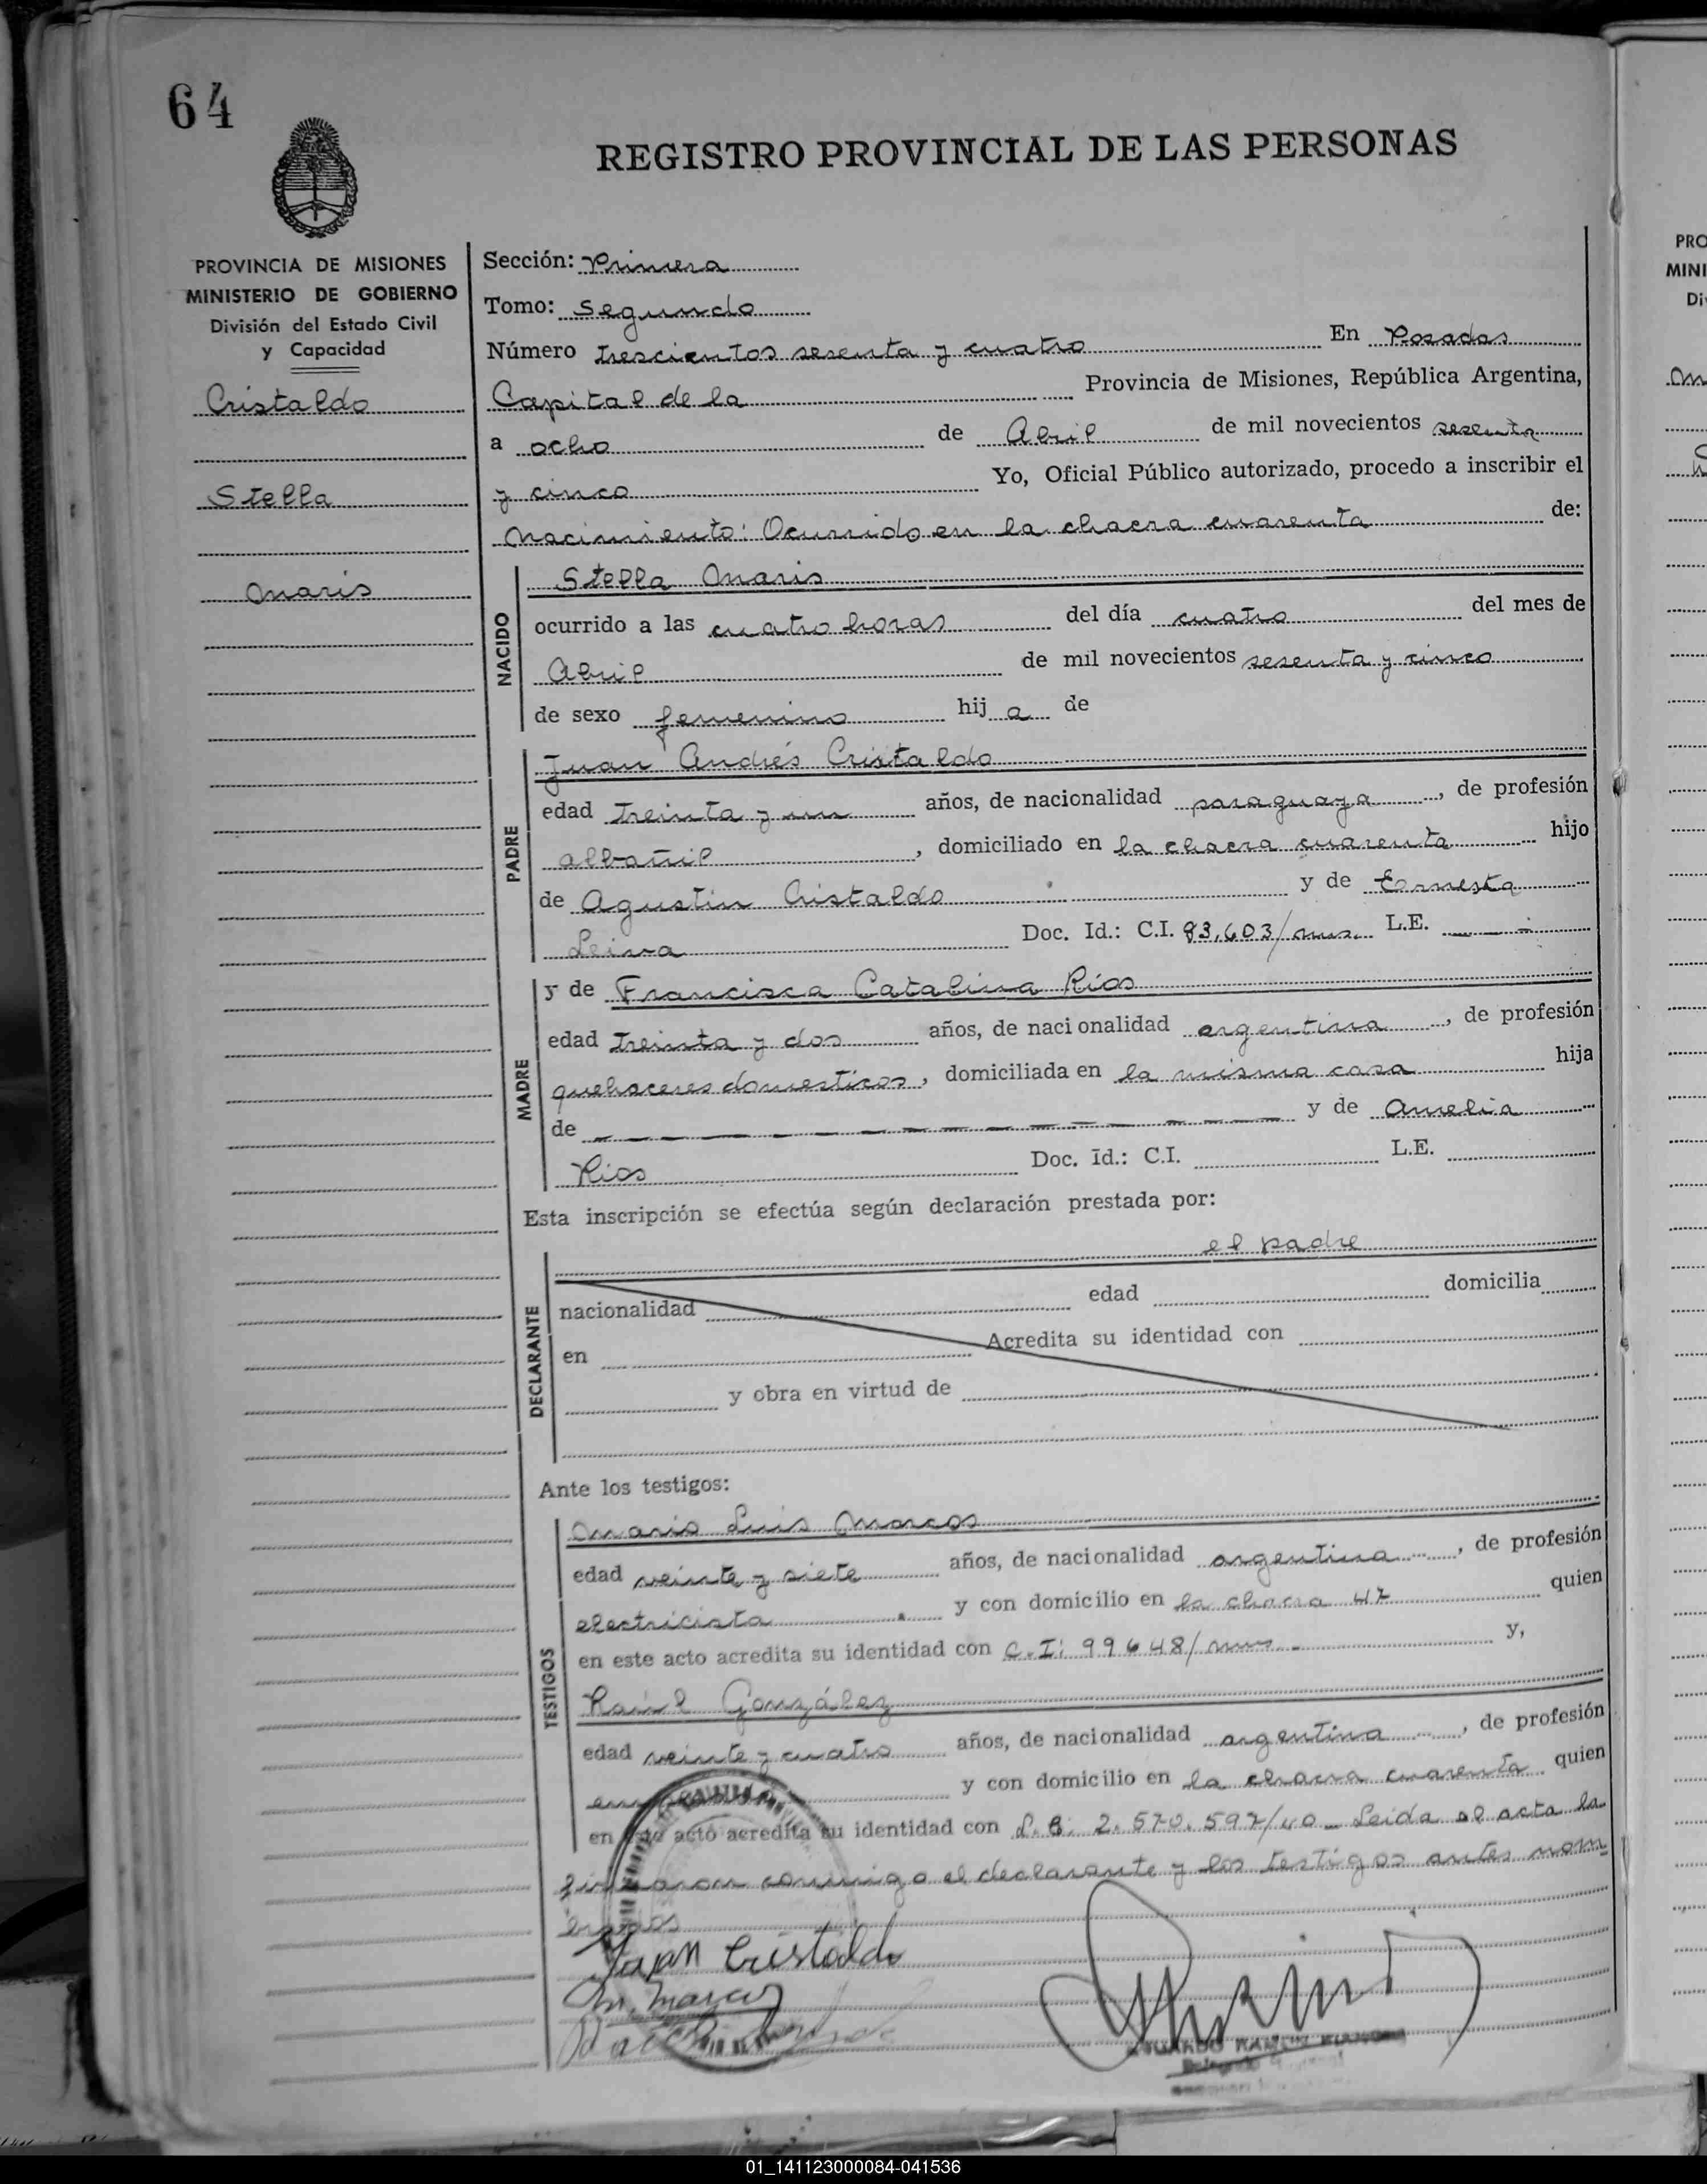 64
REGISTRO PROVINCIAL DE LAS PERSONAS
PROVINCIA DE MISIONES
MINISTERIO DE GOBIERNO
División del Estado Civil
y Capacidad
Cristaldo
Stella
Maris
Sección: Primera
Tomo: Segundo
Número trescientos sesenta y cuatro En Posadas
Capital de la Provincia de Misiones, República Argentina,
a ocho de Abril de mil novecientos sesenta
y cinco Yo, Oficial Público autorizado, procedo a inscribir el
Nacimiento: Ocurrido en la chacra cuarenta de:
NACIDO
Stella Maris
ocurrido a las cuatro horas del día cuatro del mes de
Abril de mil novecientos sesenta y cinco
de sexo femenino hij a de
PADRE
Juan Andrés Cristaldo
edad treinta y un años, de nacionalidad paraguaya, de profesión
albañil, domiciliado en la chacra cuarenta hijo
de Agustin Cristaldo y de Ernesta
Leiva Doc. Id.: C.I. 93.603/mns. L.E. — -
MADRE
y de Francisca Catalina Ríos
edad treinta y dos años, de nacionalidad argentina, de profesión
quehaceres domesticos, domiciliada en la misma casa hija
de — — — — — — — — — — — y de Amelia
Rios Doc. Id.: C.I. L.E.
Esta inscripción se efectúa según declaración prestada por:
DECLARANTE
el padre
nacionalidad edad domicilia
en Acredita su identidad con
y obra en virtud de
Ante los testigos:
TESTIGOS
Mario Luis Marcos
edad veinte y siete años, de nacionalidad argentina, de profesión
electricista y con domicilio en la chacra 47 quien
en este acto acredita su identidad con C.I: 99648/mns - y,
Raúl González
edad veinte y cuatro años, de nacionalidad argentina, de profesión
y con domicilio en la chacra cuarenta quien
en este acto acredita su identidad con 2.570.597/40 - Leida el acta la
firmaron conmigo el declarante y los testigos antes nom
brados
Juan Cristaldo
M. Marcos
RAMON
PRO
MINI
01_141123000084-041536